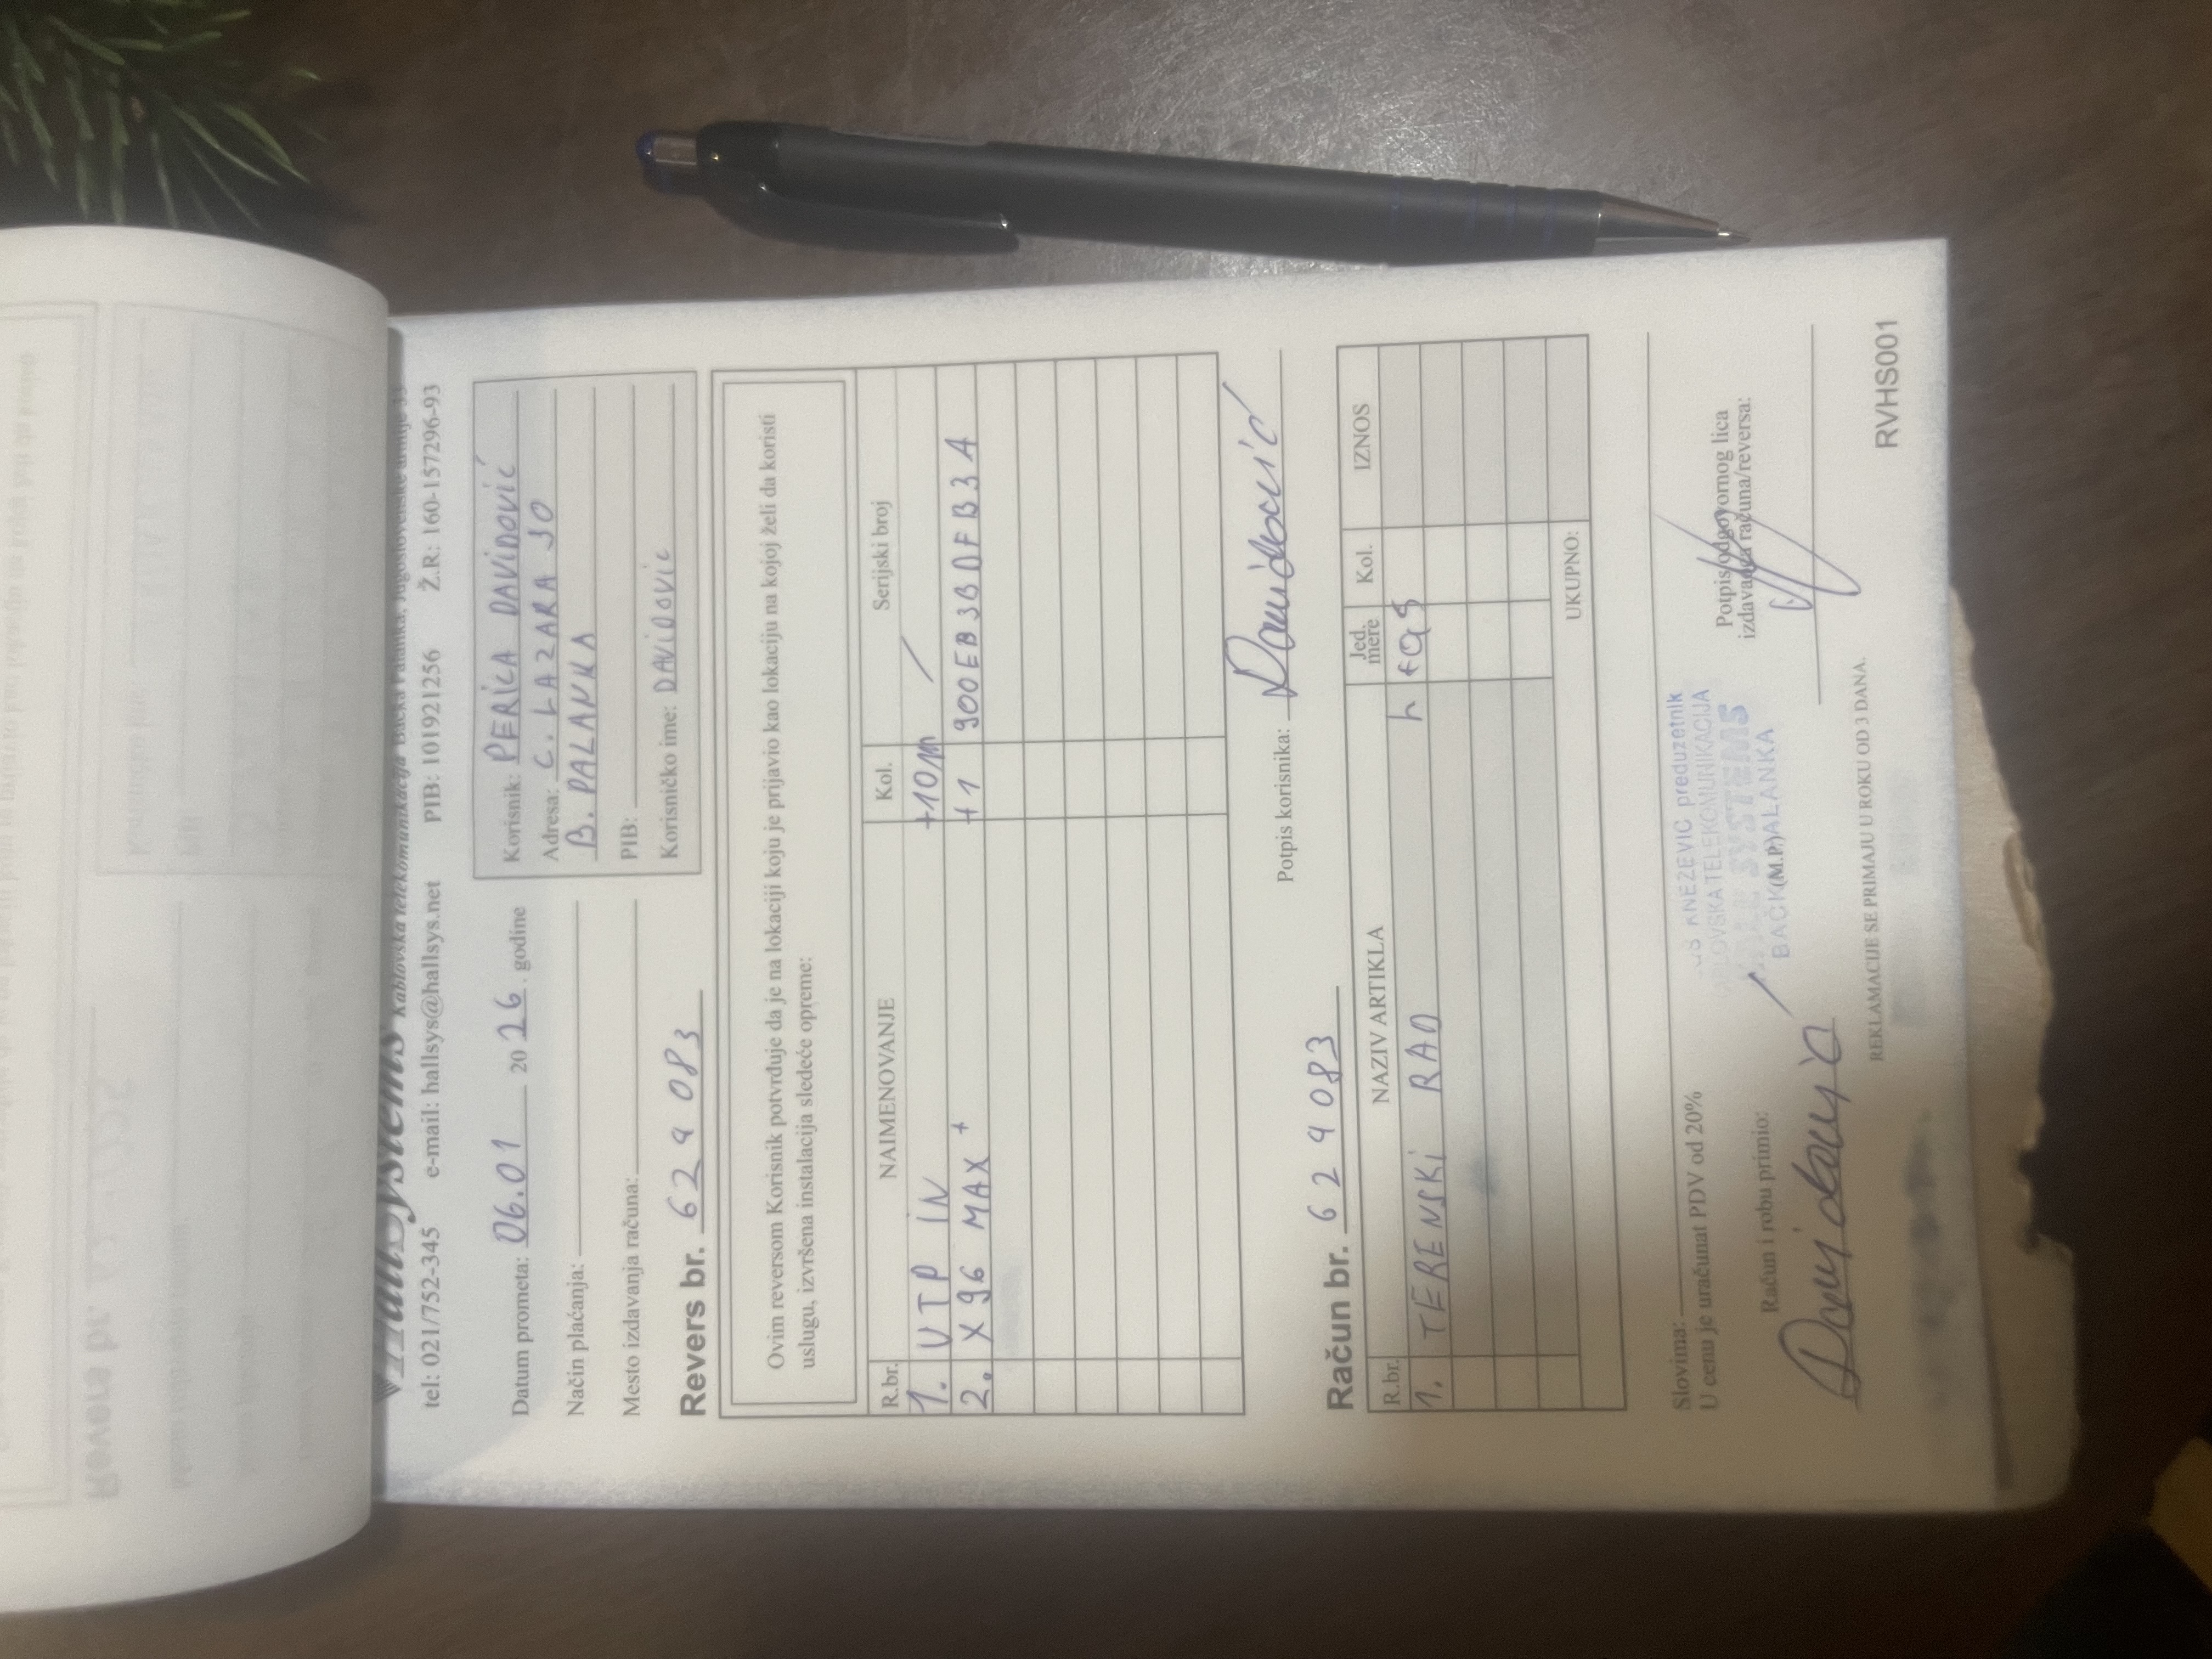 HallSystems kablovska telekomunikacija Bačka Palanka,
tel: 021/752-345 e-mail: hallsys@hallsys.net PIB: 101921256 Ž.R: 160-157296-93
Datum prometa: 06.01 2026. godine
Način plaćanja:
Mesto izdavanja računa:
Korisnik: PERICA DAVIDOVIĆ
Adresa: C. LAZARA 30
B. PALANKA
PIB:
Korisničko ime: DAVIDOVIC
Revers br. 629083
Ovim reversom Korisnik potvrđuje da je na lokaciji koju je prijavio kao lokaciju na kojoj želi da koristi
uslugu, izvršena instalacija sledeće opreme:
R.br. NAIMENOVANJE Kol. Serijski broj
1. UTP IN +10m /
2. X96 MAX + +1 900EB3BDFB3A
Potpis korisnika: Davidović
Račun br. 629083
R.br. NAZIV ARTIKLA Jed. mere Kol. IZNOS
1. TERENSKI RAD h
UKUPNO:
Slovima:
U cenu je uračunat PDV od 20%
Račun i robu primio:
Davidović
KNEZEVIC preduzetnik
TELEKOMUNIKACIJA
SYSTEMS
(M.P.) BAČKA PALANKA
Potpis odgovornog lica
izdavaoca računa/reversa:
REKLAMACIJE SE PRIMAJU U ROKU OD 3 DANA.
RVHS001